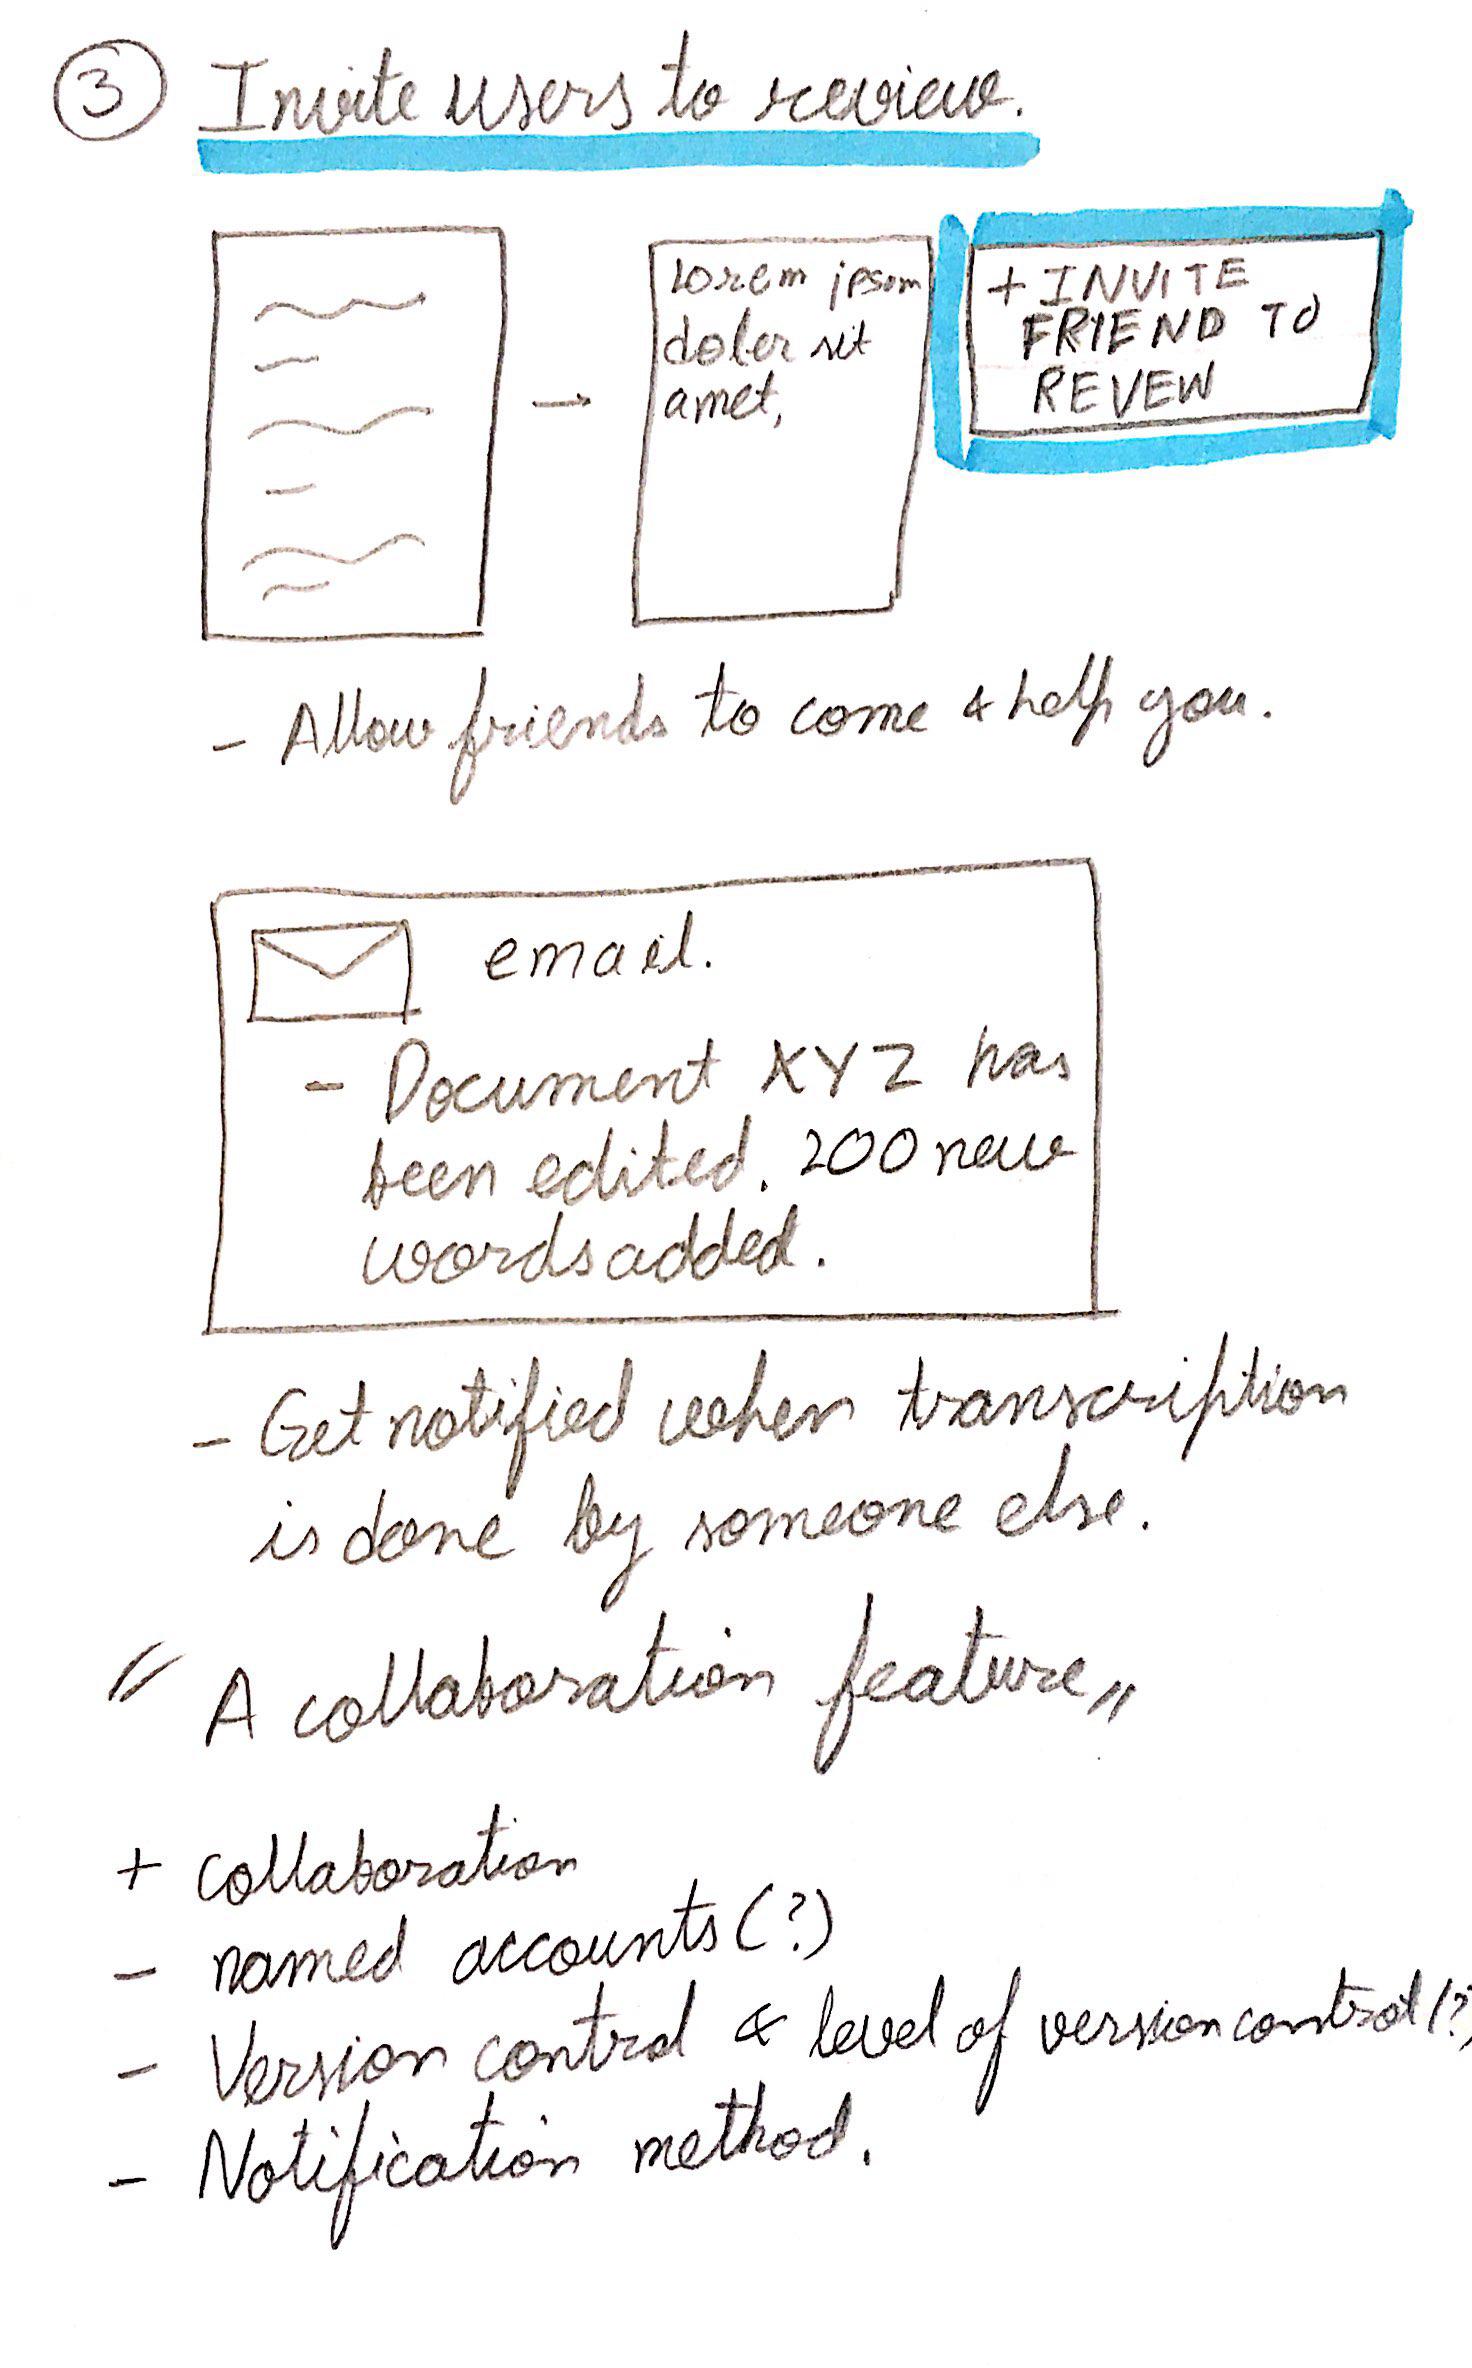 3 Invite users to review.
lorem ipsom
doler sit
amet,
+ INVITE
FRIEND TO
REVEW
- Allow friends to come & help you.
email.
- Document XYZ has
been edited. 200 new
words added.
- Get notified when transcription
is done by someone else.
" A collaboration feature„
+ collaboration
- named accounts (?)
- Version control & level of version control (?)
- Notification method.